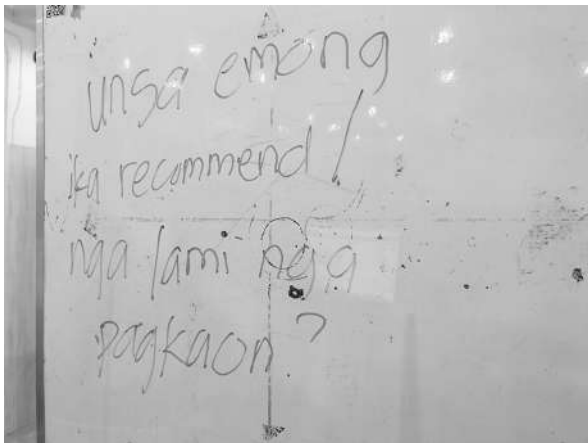 unsa emong
ika recommend /
nga lami ngg
pagkaon?